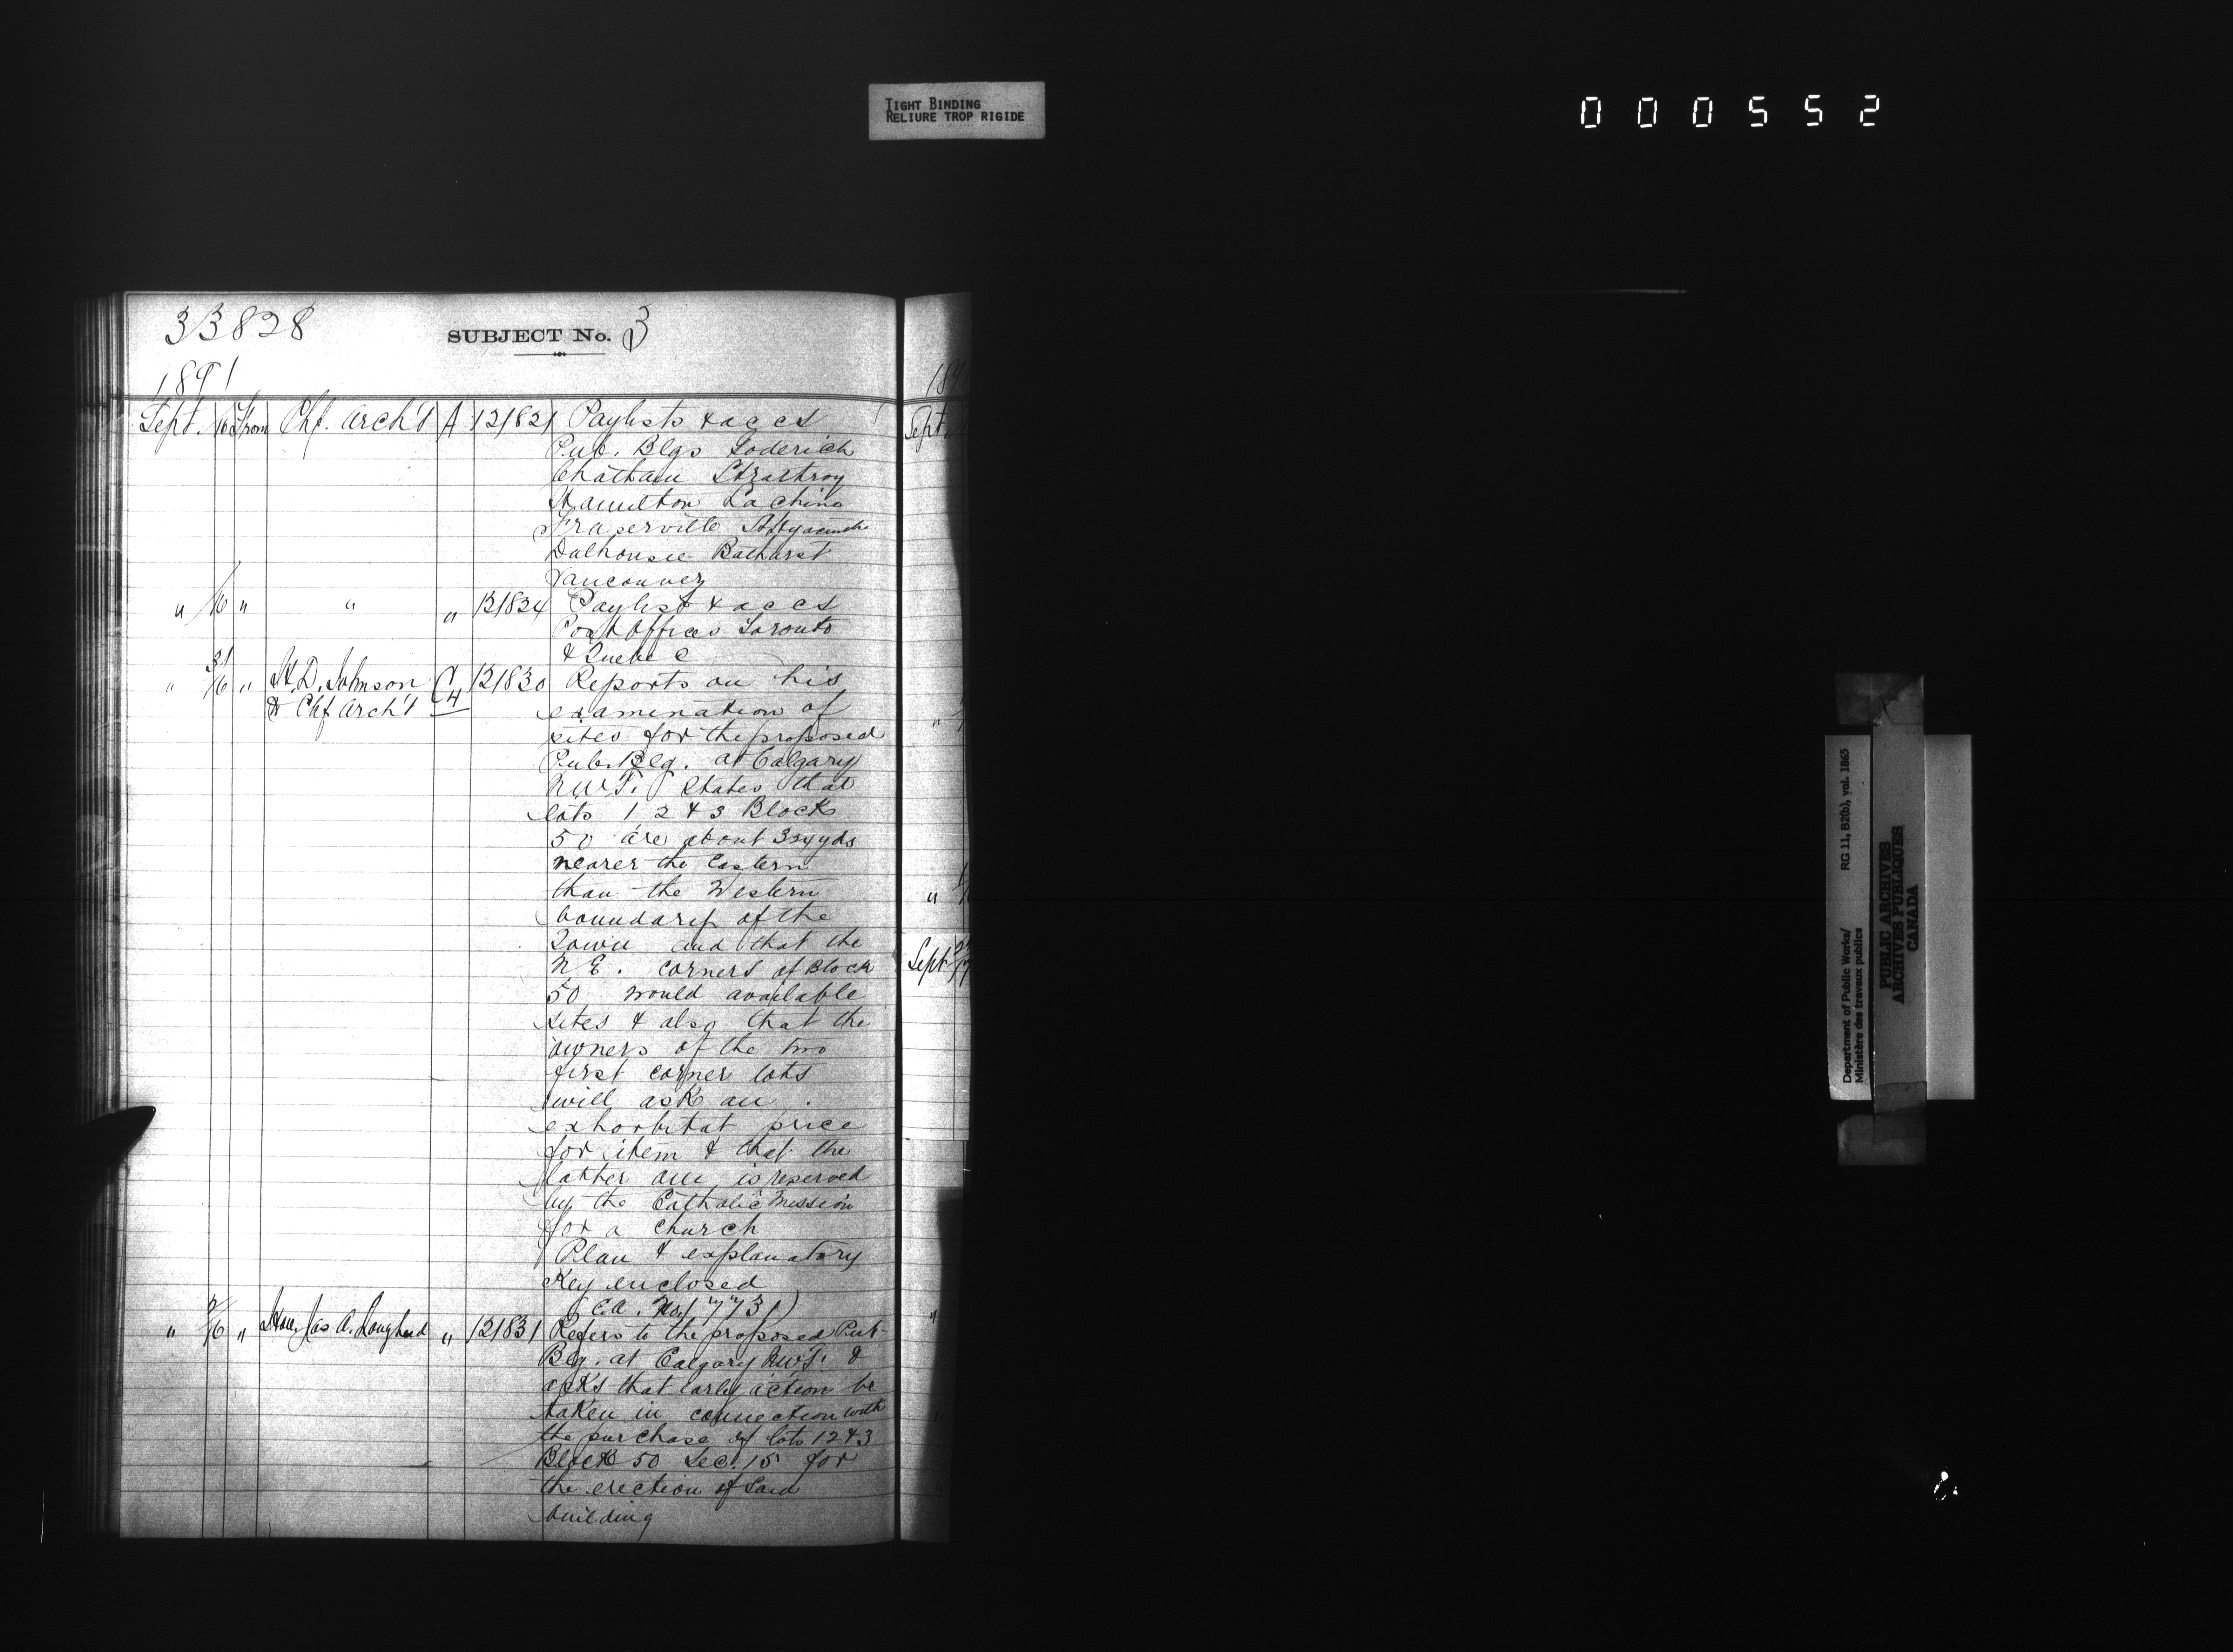 TIGHT BINDING
RELIURE TROP RIGIDE
000552
33828
SUBJECT No. 3
1891
Sept. 16 From Chf. Arch't A 121821 Paylists & accs
Pub. Blgs Goderich
Chatham Strathroy
Hamilton Lachine
Fraserville St Hyacinthe
Dalhousie Bathurst
Vancouver
" 16 " " " 121824 Paylist & accs
Post Offices Toronto
& Quebec
" 31/16 " H. D. Johnson C 121830 Reports on his
& Chf Arch't H examination of
sites for the proposed
Pub. Blg. at Calgary
N.W.T. States that
lots 1 2 & 3 Block
50 are about 334 yds
nearer the Eastern
than the Western
boundary of the
Town and that the
N E. corners of Block
50 would available
sites & also that the
owners of the two
first corner lots
will ask an
exhorbitat price
for them & that the
latter one is reserved
by the Catholic Mission
for a church
Plan & explanatory
Key enclosed
(C.A. No. 17731)
" 16 " Hon. Jas A. Lougheed " 121831 Refers to the proposed Pub-
Blg. at Calgary N.W.T. &
asks that early action be
taken in connection with
the purchase of lots 1 2 & 3
Block 50 Sec. 15 for
the erection of said
building
189
Sept
"
"
Sept
"
Department of Public Works/ RG 11, B2(b), vol. 1865
Ministère des travaux publics
PUBLIC ARCHIVES
ARCHIVES PUBLIQUES
CANADA